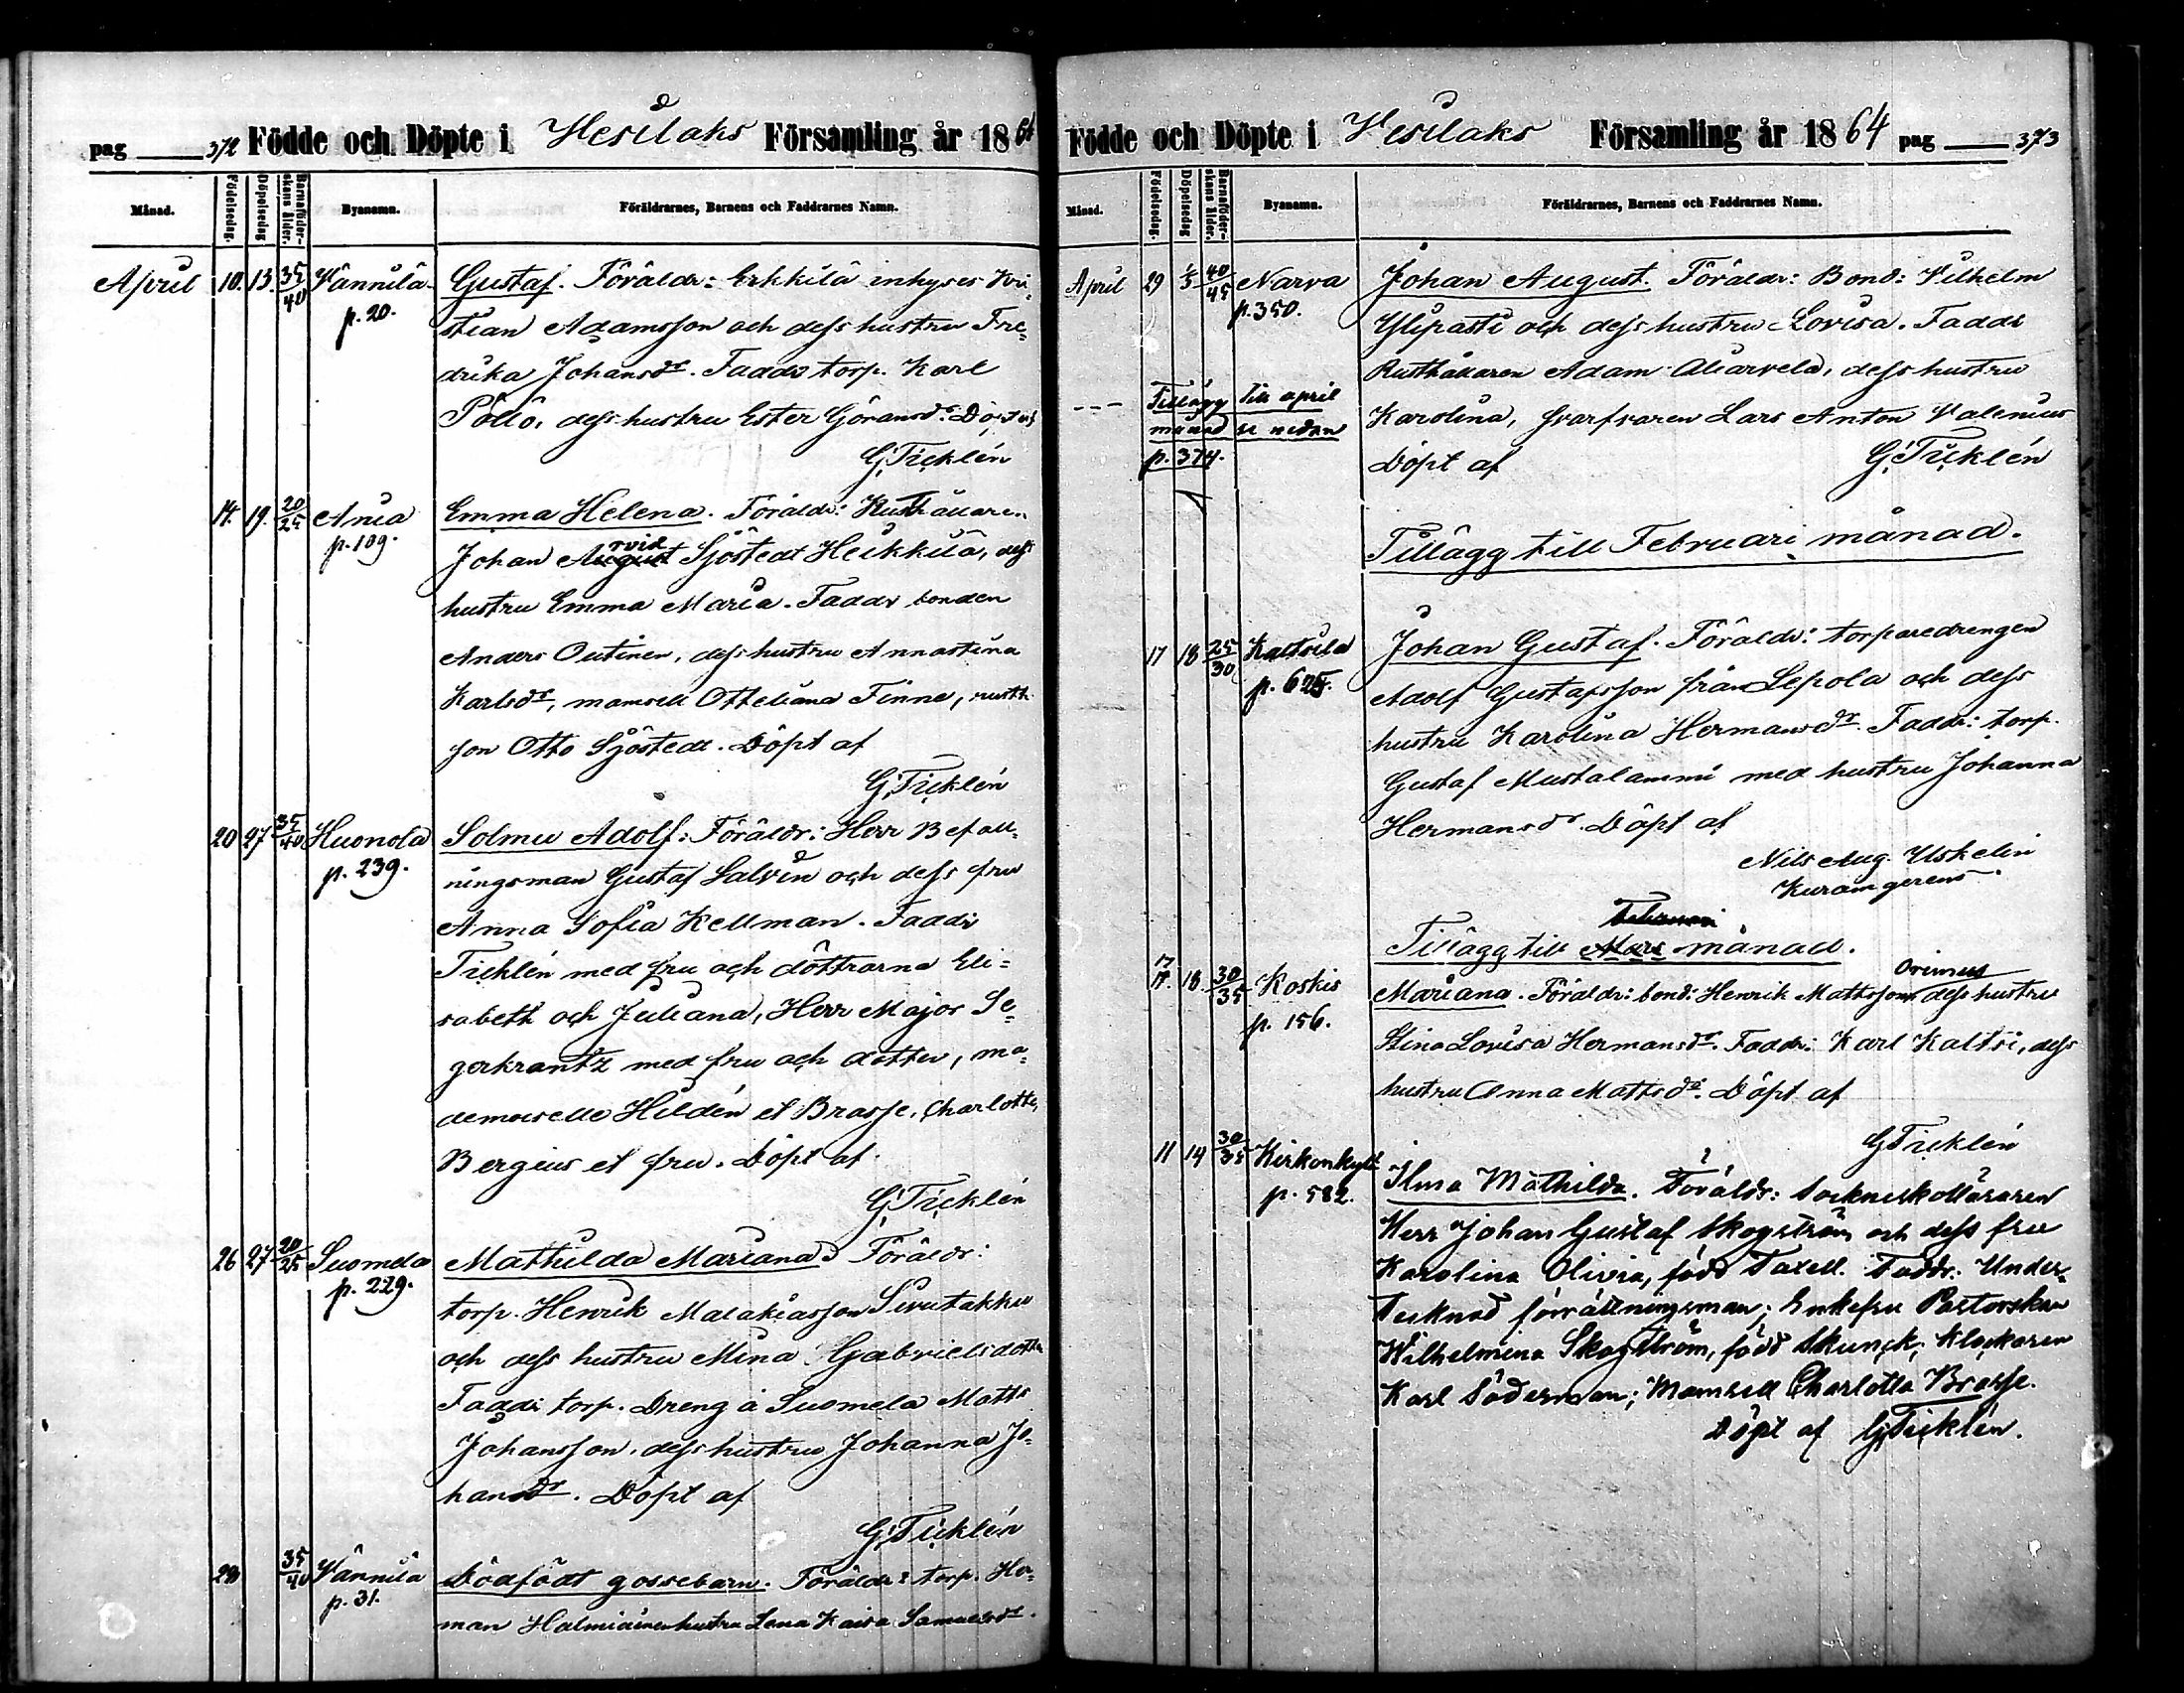 pag 372 Födde och Döpte i Vesilaks Församling år 1864
Månad. Födelsedag. Döpelsedag Barnaföder-skans ålder. Byanamn. Föräldrarnes, Barnens och Faddrarnes Namn.
April 10. 13. 35/40 Vännilä Gustaf. Föräldr: Erkkilä inhyses Kri-
p. 20. stian Adamsson och dess hustru Fre-
drika Johansdr. Faddr torp. Karl
Pöllö, dess hustru Ester Göransdr. Döpt af
G. Ticklén
14. 19. 20/25 Ania Emma Helena. Föräldr: Rusthållaren
p. 109. Johan August rvid Sjöstedt Heikkilä, dess
hustru Emma Maria. Faddr bonden
Anders Outinen, dess hustru Annastina
Karlsdr, mamsell Otteliana Finne, rusth.
son Otto Sjöstedt. Döpt af
G. Ticklén
20 27 35/40 Huonola Solmu Adolf. Föräldr: Herr Befall-
p. 239. ningsman Gustaf Salvin och dess fru
Anna Sofia Kellman. Faddr
Ticklén med fru och döttrarna Eli-
sabeth och Juliana, Herr Major Se-
gerkrantz med fru och dotter, ma-
demoiselle Hildén et Brasse, Charlotte,
Bergius et fru. Döpt af
G. Ticklén
26 27 20/25 Suomela Mathilda Mariana. Föräldr:
p. 229. torp. Henrik Malakiasson Sivutakku
och dess hustru Mina Gabrielsdotter
Faddr torp. Dreng å Suomela Matts
Johansson, dess hustru Johanna Jo-
hansdr. Döpt af
G. Ticklén
28 35/40 Vännilä Dödfödt gossebarn. Föräldr: torp. Her-
p. 31. man Halmiainen hustru Lena Kaisa Samuelsdr.
Födde och Döpte i Vesilaks Församling år 1864 pag 373
Månad. Födelsedag. Döpelsedag Barnaföder-skans ålder. Byanamn. Föräldrarnes, Barnens och Faddrarnes Namn.
April 29 1/5 40/45 Narva Johan August. Föräldr: Bond: Vilhelm
p. 350. Ylipasti och dess hustru Lovisa. Faddr
Rusthållaren Adam Aliarvela, dess hustru
--- Tillägg till april Karolina, Garfvaren Lars Anton Valenius
månad se nedan
p. 374. Döpt af G. Ticklén
Tillägg till Februari månad.
17 18 25/30 Kaltsila Johan Gustaf. Föräldr: torparedrengen
p. 625. Adolf Gustafsson från Lepola och dess
hustru Karolina Hermansdr. Faddr: torp.
Gustaf Mustalammi med hustru Johanna
Hermansdr. Döpt af
Nils Aug. Uskelin
Kuram gerens.
Februari
Tillägg till Mars månad.
17. 18. 30/35 Koskis Mariana. Föräldr: bond: Henrik Mattsson Orimus dess hustru
p. 156. Stina Lovisa Hermansdr. Faddr: Karl Kaltsi, dess
hustru Anna Mattsdr. Döpt af
G Ticklén
11 14 30/35 Kirkonkylä Ilma Mathilda. Föräldr: Sockneskolläraren
p. 582. Herr Johan Gustaf Skogström och dess fru
Karolina Olivia, född Taxell. Faddr: Under-
tecknad förrättningsman; Enkefru Pastorskan
Wilhelmina Skogström, född Skunck; Klockaren
Karl Söderman; Mamsell Charlotta Brasse.
Döpt af G. Ticklén.